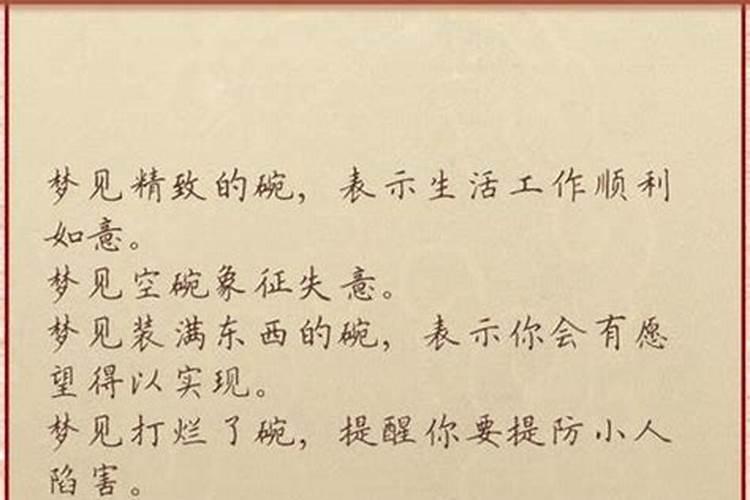 梦见精致的碗，表示生活工作顺利
如意。
梦见空碗象征失意。
梦见装满东西的碗，表示你会有愿
望得以实现。
梦见打烂了碗，提醒你要提防小人
陷害。